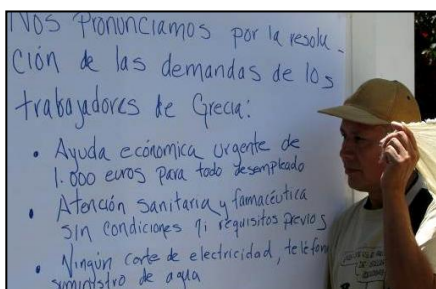 Nos Pronunciamos por la resolu-
ción de las demandas de los
trabajadores de Grecia:
• Ayuda económica urgente de
1.000 euros para todo desempleado
• Atención sanitaria y farmacéutica
sin condiciones ni requisitos previos
• Ningún corte de electricidad, teléfon
suministro de agua